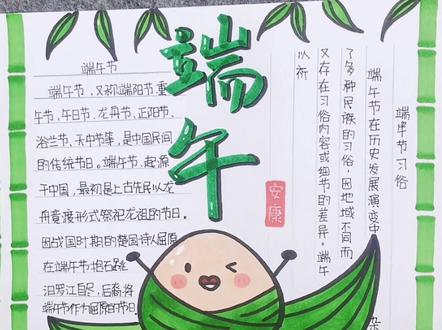 端午节
端午节，又称端阳节、重
午节、午日节、龙舟节、正阳节、
浴兰节、天中节等，是中国民间
的传统节日。端午节，起源
于中国，最初是上古先民以龙
舟竞渡形式祭祀龙祖的节日。
因战国时期的楚国诗人屈原
在端午节抱石跳
汨罗江自尽，后裔将
端午节作为屈原的节日
端午
安康
端午节习俗
端午节在历史发展演变中杂
了多种民族的习俗，因地域不同而
又存在习俗内容或细节的差异。端午
以祈